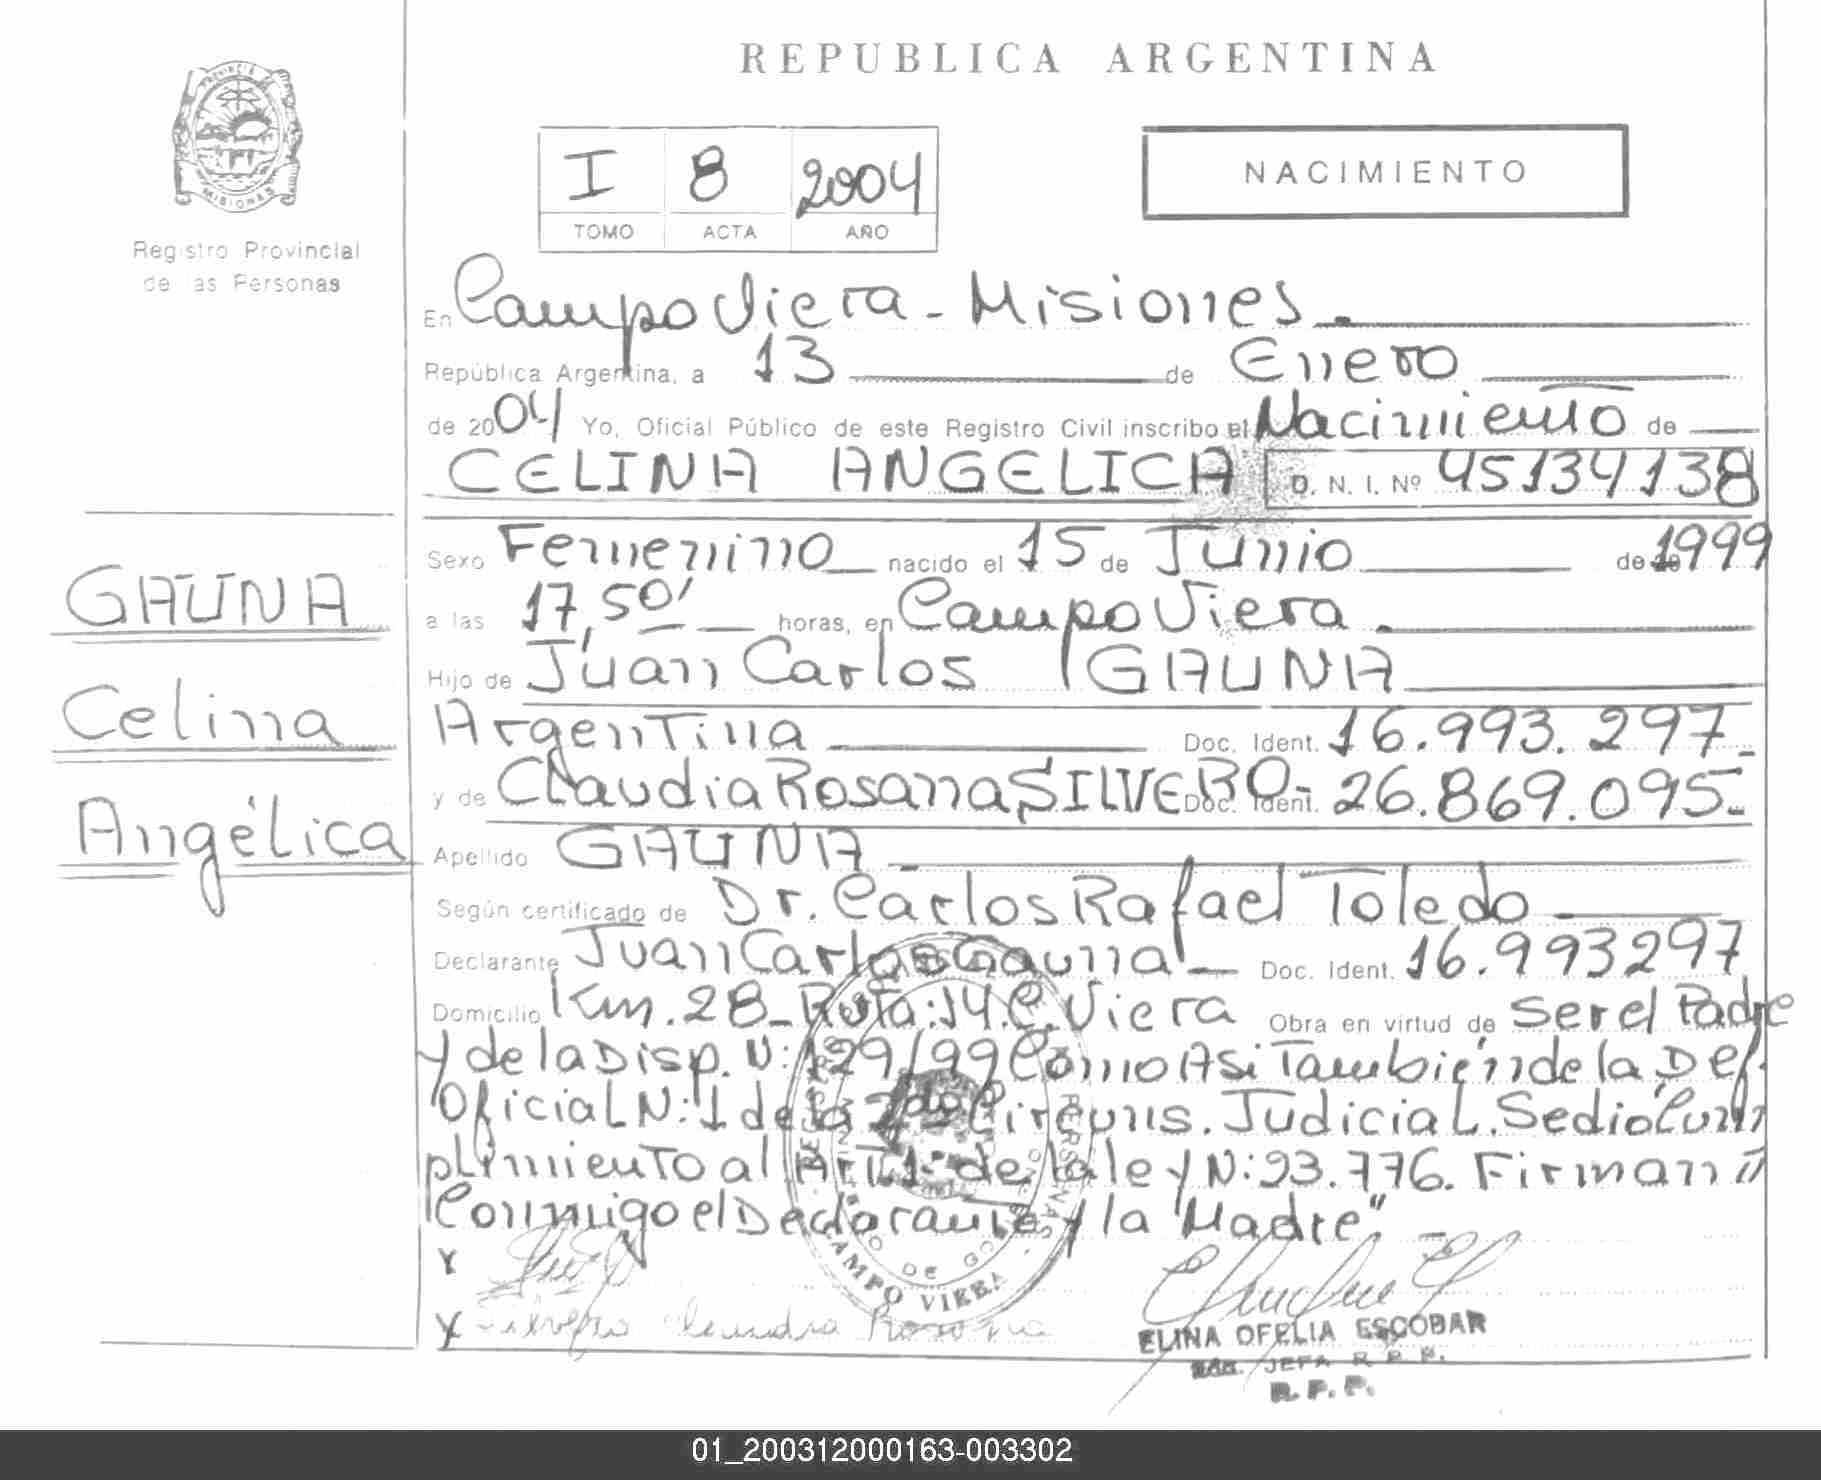 REPUBLICA ARGENTINA
PROVINCIA DE
MISIONES
Registro Provincial
de las Personas
I 8 2004
TOMO ACTA AÑO
NACIMIENTO
En Campo Viera - Misiones.
República Argentina, a 13 de Enero
de 2004 Yo, Oficial Público de este Registro Civil inscribo el Nacimiento de
CELINA ANGELICA D. N. I. Nº 45134138
Sexo Femenino nacido el 15 de Junio de 1999
GAUNA
Celina
Angélica
a las 17,50' horas, en Campo Viera.
Hijo de Juan Carlos GAUNA
Argentina Doc. Ident. 16.993.297-
y de Claudia Rosana SILVERO- Doc. Ident. 26.869.095-
Apellido GAUNA
Según certificado de Dr. Carlos Rafael Toledo
Declarante Juan Carlos Gauna Doc. Ident. 16.993297
Domicilio Km. 28 - Ruta: 14. C. Viera Obra en virtud de Ser el Padre
y de la Disp. N: 129/99 Como Asi También de la Def.
Oficial N: 1 de la 2da Circuns. Judicial. Se dio Cum
plimiento al Art. 1- de la ley N: 23.776. Firman
Conmigo el Declarante y la "Madre".
Silvero Claudia Rosana
CAMPO VIERA
ELINA OFELIA ESCOBAR
JEFA R. P. P.
R. P. P.
01_200312000163-003302